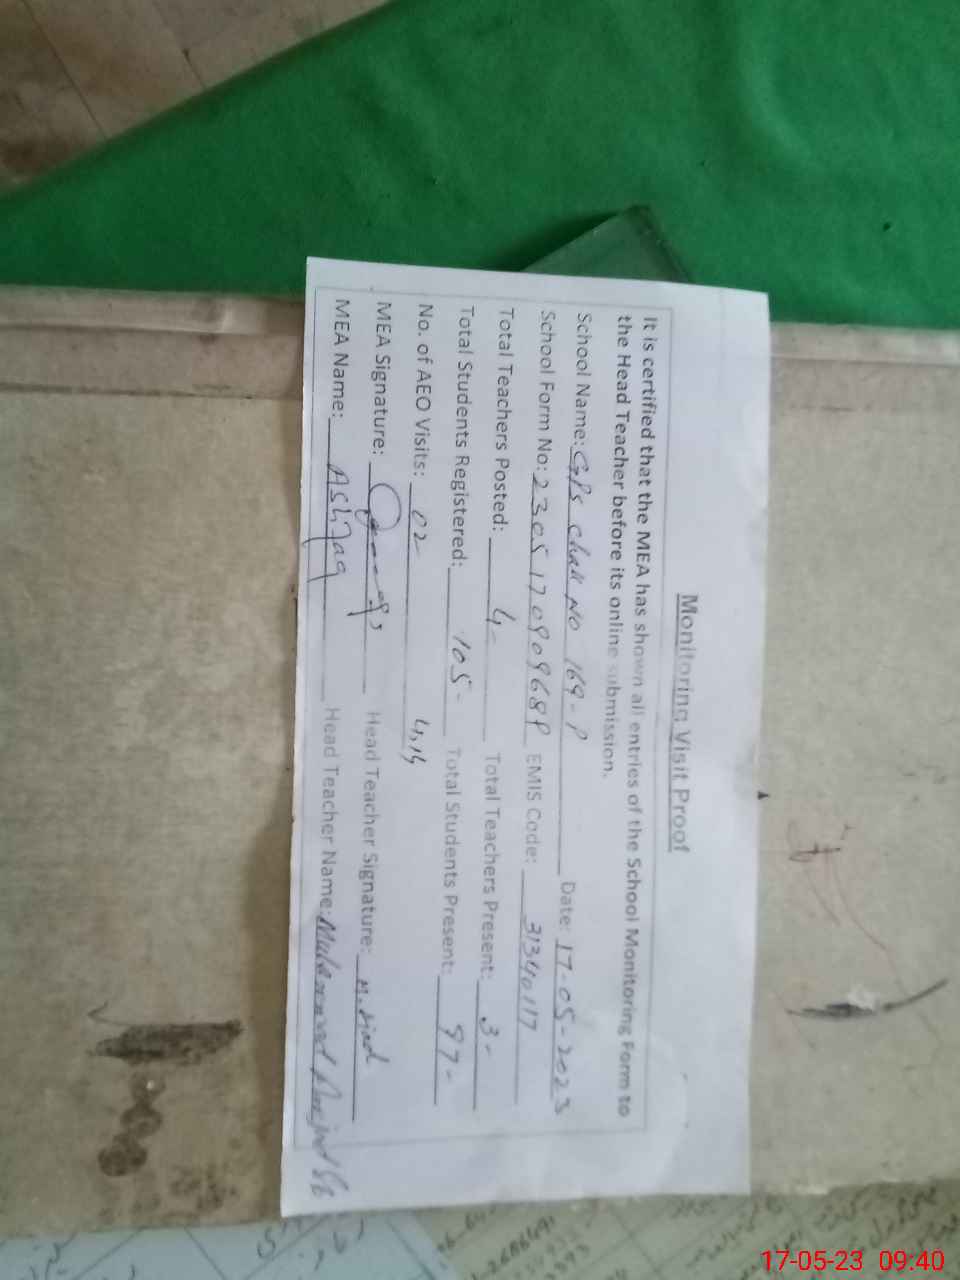 Monitoring Visit Proof
It is certified that the MEA has shown all entries of the School Monitoring Form to
the Head Teacher before its online submission.
School Name: GPS Chak NO 169-P Date: 17-05-2023
School Form No: 2305170909689 EMIS Code: 31340117
Total Teachers Posted: 4- Total Teachers Present: 3-
Total Students Registered: 105- Total Students Present: 97-
No. of AEO Visits: 02
MEA Signature: Head Teacher Signature:
MEA Name: Ashfaq Head Teacher Name: Muhammad
17-05-23 09:40